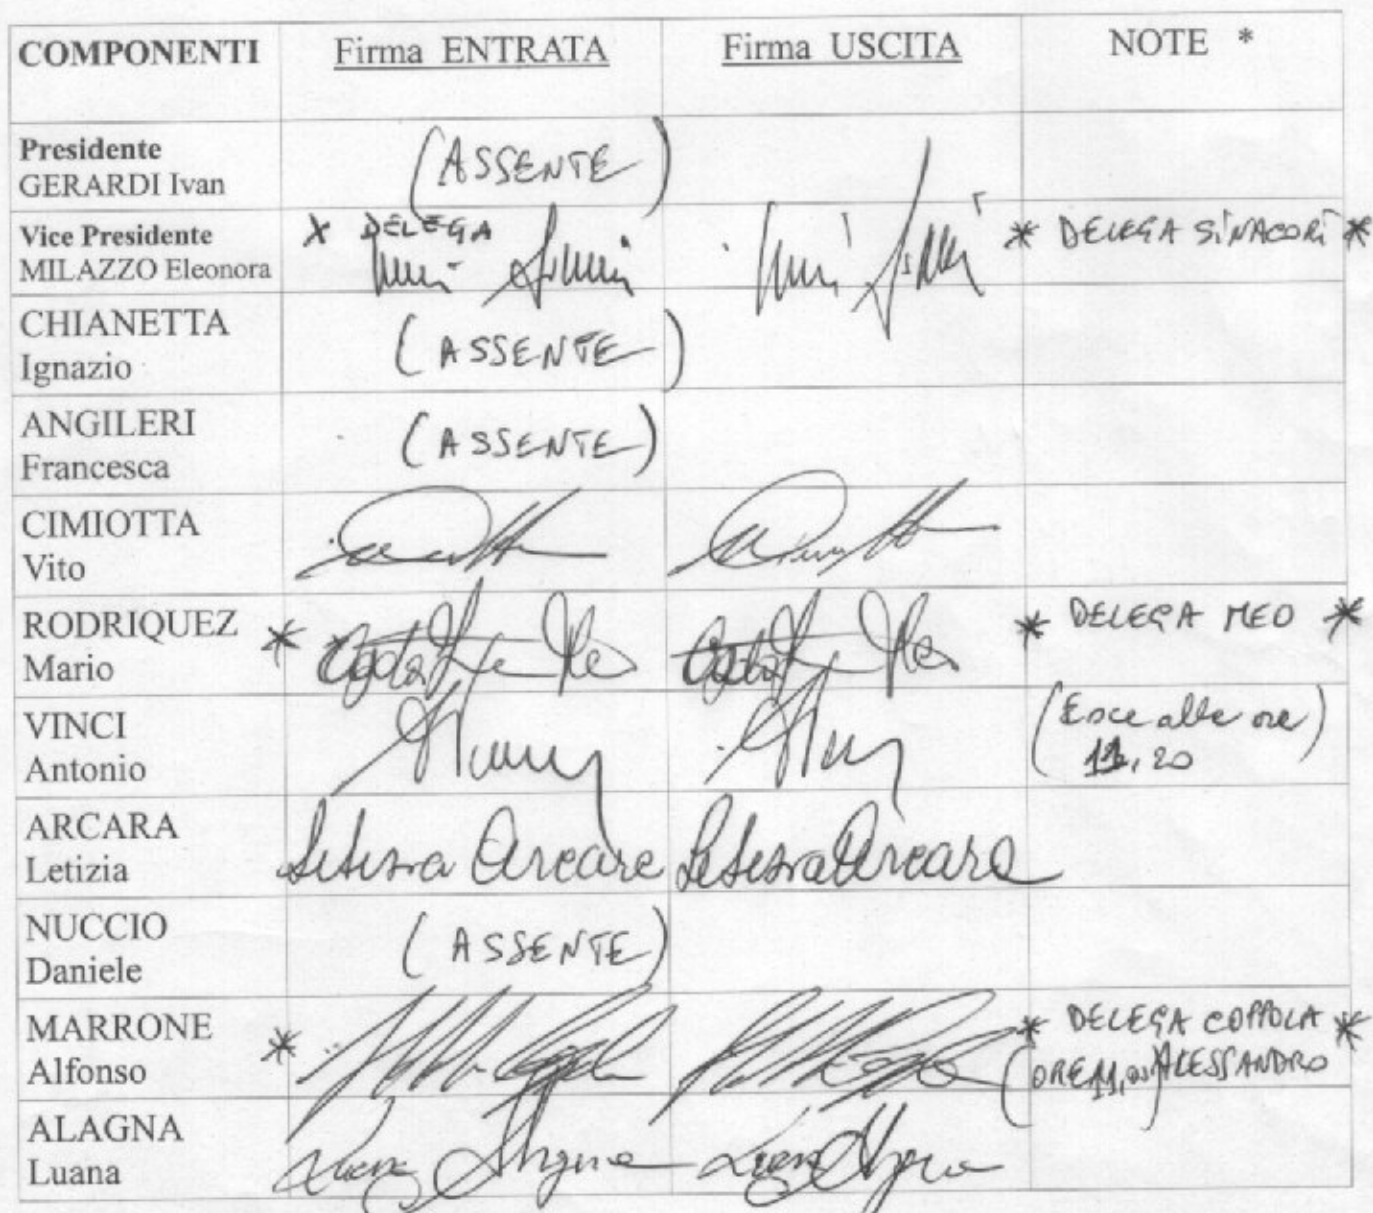 COMPONENTI Firma ENTRATA Firma USCITA NOTE *
Presidente
GERARDI Ivan (ASSENTE)
Vice Presidente X DELEGA * DELEGA SINACORI *
MILAZZO Eleonora
CHIANETTA
Ignazio (ASSENTE)
ANGILERI
Francesca (ASSENTE)
CIMIOTTA
Vito
RODRIQUEZ * * DELEGA MEO *
Mario
VINCI (Esce alle ore
Antonio 11,20)
ARCARA
Letizia Letizia Arcara Letizia Arcara
NUCCIO
Daniele (ASSENTE)
MARRONE * * DELEGA COPPOLA *
Alfonso (ORE 11,05) ALESSANDRO
ALAGNA
Luana Luana Alagna Luana Alagna